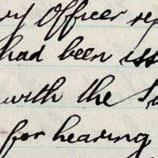 Officer
had been
with the
for hearing